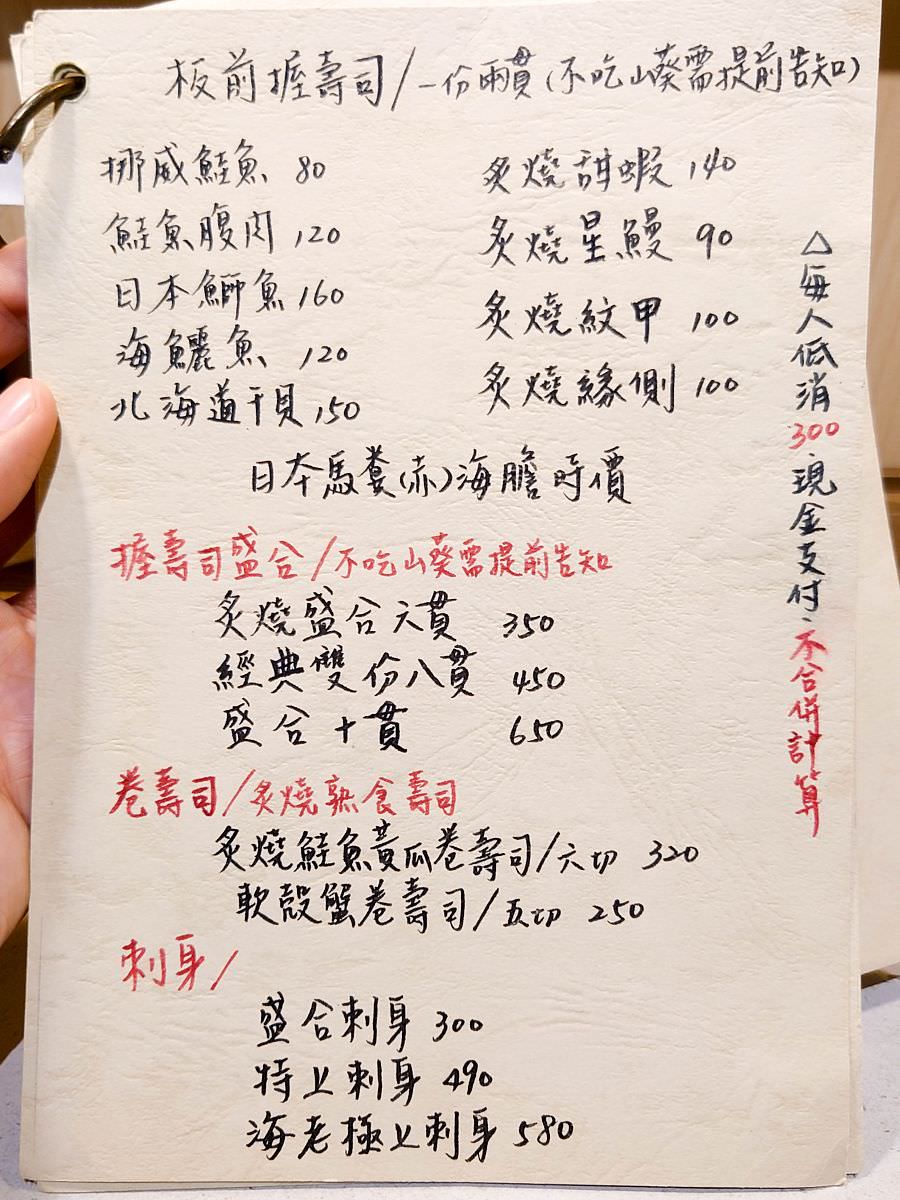 板前握壽司/一份兩貫(不吃山葵需提前告知)
挪威鮭魚 80
鮭魚腹肉 120
日本鰤魚 160
海鱺魚 120
北海道干貝 150
炙燒甜蝦 140
炙燒星鰻 90
炙燒紋甲 100
炙燒緣側 100
日本馬糞(赤)海膽 時價
握壽司盛合/不吃山葵需提前告知
炙燒盛合六貫 350
經典雙份八貫 450
盛合十貫 650
卷壽司/炙燒熟食壽司
炙燒鮭魚黃瓜卷壽司/六切 320
軟殼蟹卷壽司/五切 250
刺身/
盛合刺身 300
特上刺身 490
海老極上刺身 580
△每人低消300·現金支付·不合併計算